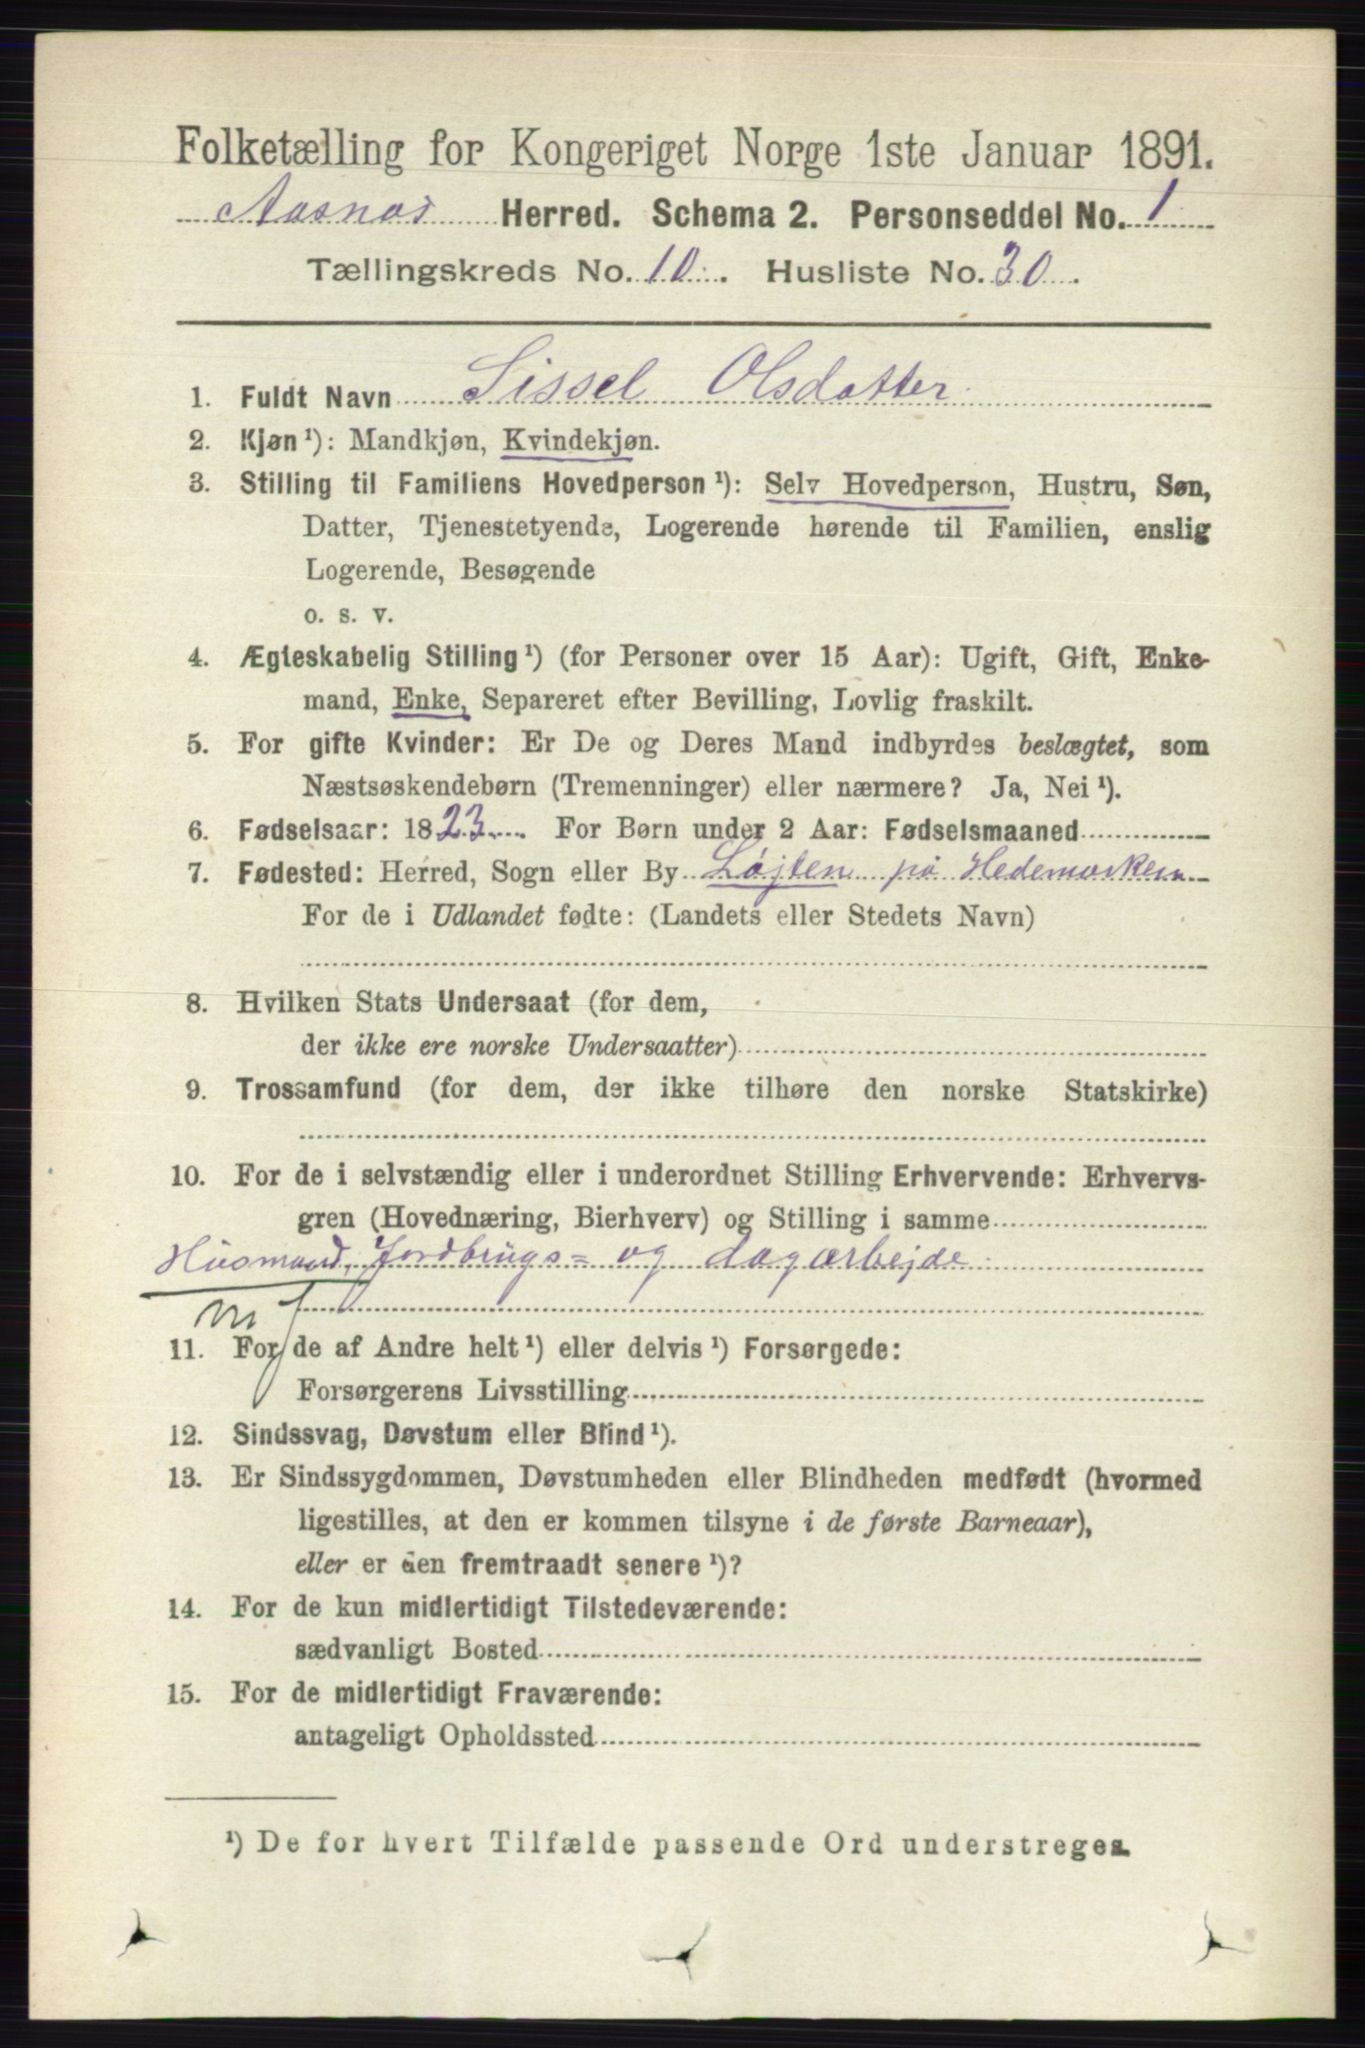 Folketælling for Kongeriget Norge 1ste Januar 1891.
Aasnas Herred. Schema 2. Personseddel No. 1
Tællingskreds No. 10. Husliste No. 30.
1. Fuldt Navn Sissel Olsdatter
2. Kjøn ¹): Mandkjøn, Kvindekjøn.
3. Stilling til Familiens Hovedperson ¹): Selv Hovedperson, Hustru, Søn,
Datter, Tjenestetyende, Logerende hørende til Familien, enslig
Logerende, Besøgende
o. s. v.
4. Ægteskabelig Stilling ¹) (for Personer over 15 Aar): Ugift, Gift, Enke-
mand, Enke, Separeret efter Bevilling, Lovlig fraskilt.
5. For gifte Kvinder: Er De og Deres Mand indbyrdes beslægtet, som
Næstsøskendebørn (Tremenninger) eller nærmere? Ja, Nei ¹).
6. Fødselsaar: 1823. For Børn under 2 Aar: Fødselsmaaned
7. Fødested: Herred, Sogn eller By Løjten på Hedemarken
For de i Udlandet fødte: (Landets eller Stedets Navn)
8. Hvilken Stats Undersaat (for dem,
der ikke ere norske Undersaatter)
9. Trossamfund (for dem, der ikke tilhøre den norske Statskirke)
10. For de i selvstændig eller i underordnet Stilling Erhvervende: Erhvervs-
gren (Hovednæring, Bierhverv) og Stilling i samme
Husmand, Jordbrugs= og dagarbejde
mf
11. For de af Andre helt ¹) eller delvis ¹) Forsørgede:
Forsørgerens Livsstilling
12. Sindssvag, Døvstum eller Blind ¹).
13. Er Sindssygdommen, Døvstumheden eller Blindheden medfødt (hvormed
ligestilles, at den er kommen tilsyne i de første Barneaar),
eller er den fremtraadt senere ¹)?
14. For de kun midlertidigt Tilstedeværende:
sædvanligt Bosted
15. For de midlertidigt Fraværende:
antageligt Opholdssted
¹) De for hvert Tilfælde passende Ord understreges.